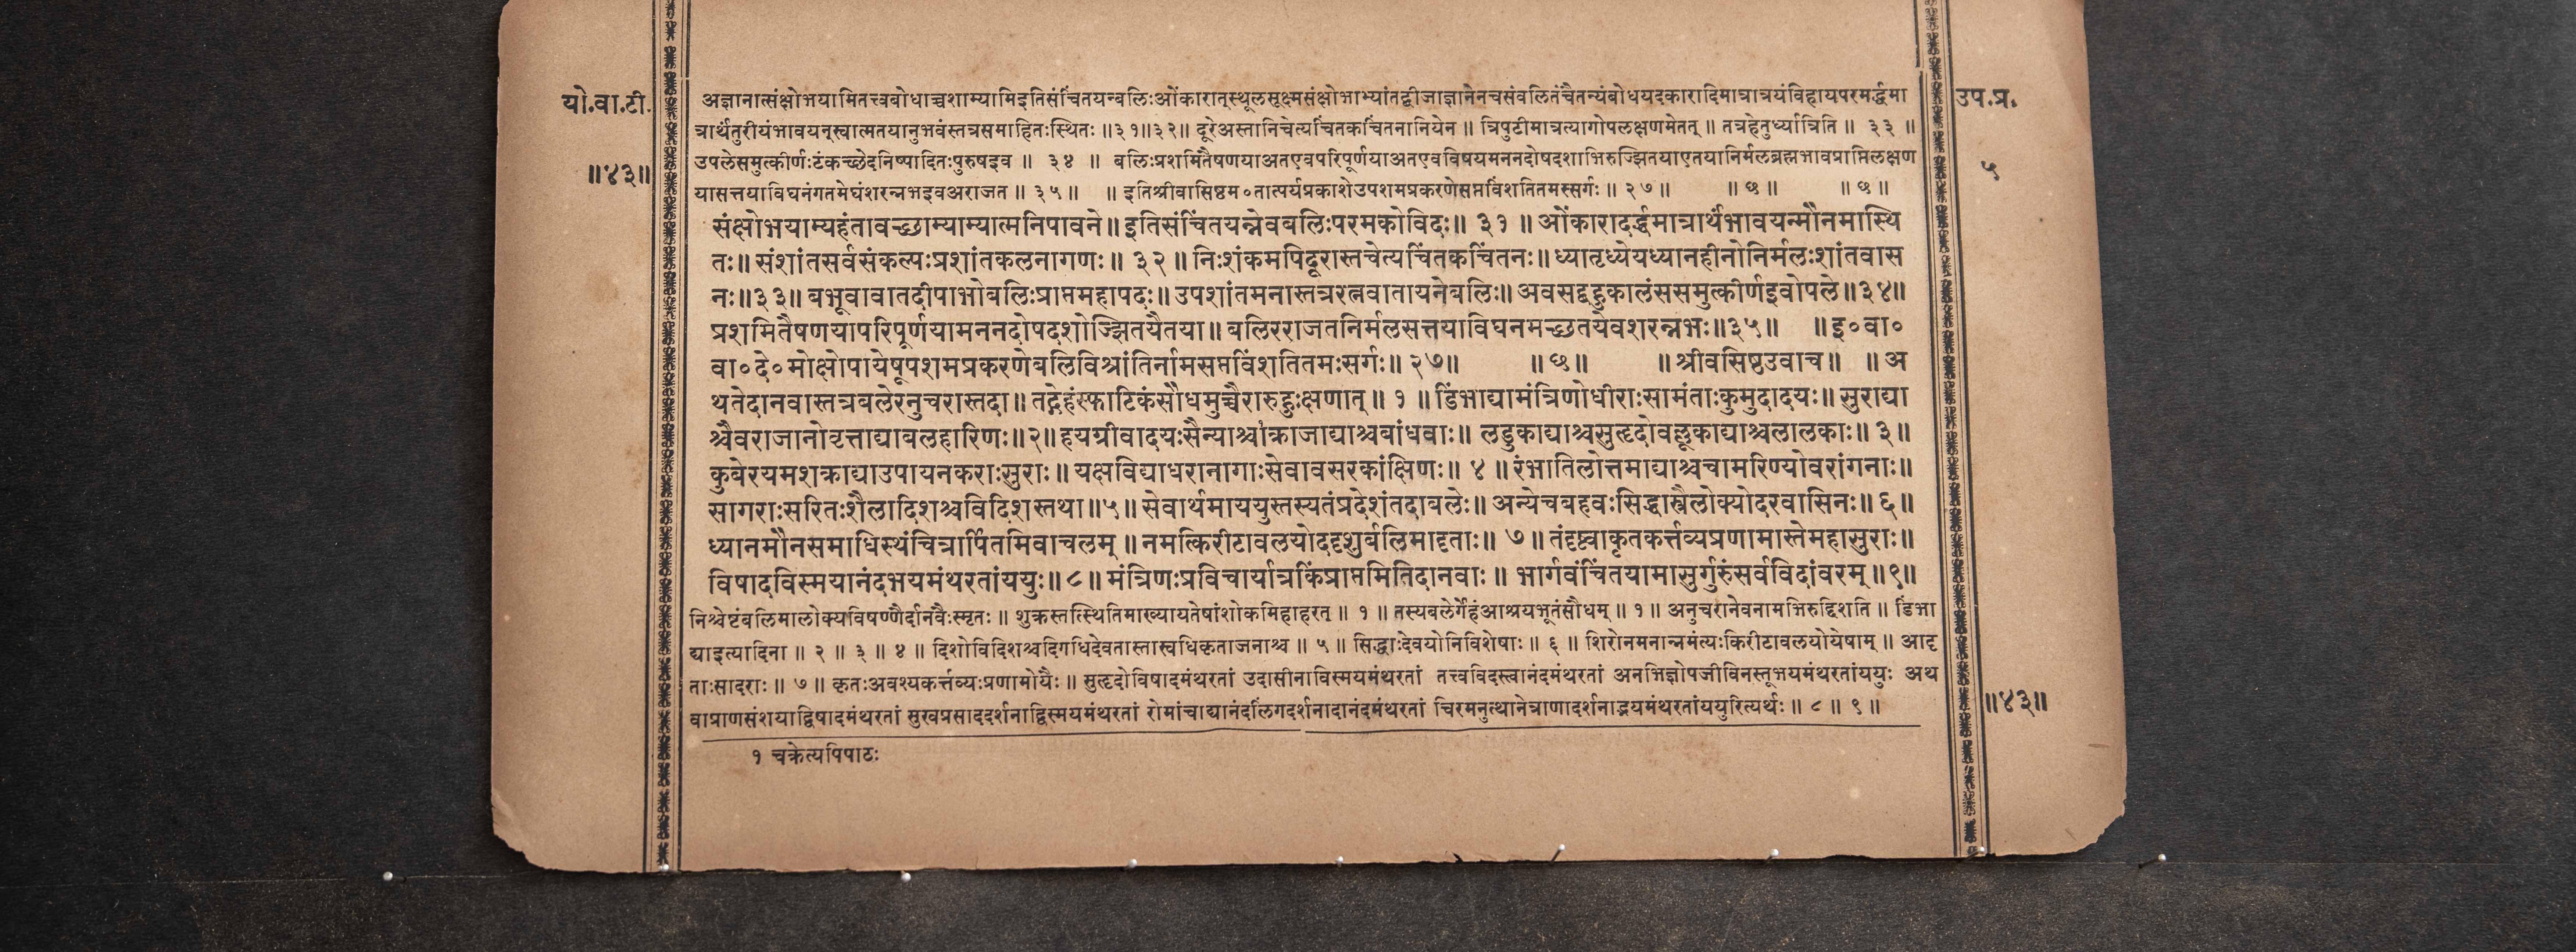 यो.वा.टी.
॥४३॥
अज्ञानात्संक्षोभयामितत्त्वबोधाच्चशाम्यामिइतिसंचिंतयन्बलिःओंकारात्स्थूलसूक्ष्मसंक्षोभाभ्यांतद्बीजाज्ञानेनचसंवलितंचैतन्यंबोधयदकारादिमात्रात्रयंविहायपरमर्द्धमा
त्रार्थंतुरीयंभावयन्स्वात्मतयानुभवंस्तत्रसमाहितःस्थितः ॥३१॥३२॥ दूरेअस्तानिचेत्यचिंतकचिंतनानियेन ॥ त्रिपुटीमात्रत्यागोपलक्षणमेतत् ॥ तत्रहेतुर्ध्यात्रिति ॥ ३३ ॥
उपलेसमुत्कीर्णःटंकच्छेदनिष्पादितःपुरुषइव ॥ ३४ ॥ बलिःप्रशमितैषणयाअतएवपरिपूर्णयाअतएवविषयमननदोषदशाभिरुज्झितयाएतयानिर्मलब्रह्मभावप्राप्तिलक्षण
यासत्तयाविघनंगतमेघंशरन्नभइवअराजत ॥ ३५ ॥ ॥ इतिश्रीवासिष्ठम०तात्पर्यप्रकाशेउपशमप्रकरणेसप्तविंशतितमस्सर्गः ॥ २७ ॥ ॥ छ ॥ ॥ छ ॥
संक्षोभयाम्यहंतावच्छाम्याम्यात्मनिपावने॥ इतिसंचिंतयन्नेवबलिःपरमकोविदः॥ ३१ ॥ ओंकारादर्द्धमात्रार्थंभावयन्मौनमास्थि
तः॥ संशांतसर्वसंकल्पःप्रशांतकलनागणः॥ ३२ ॥ निःशंकमपिदूरास्तचेत्यचिंतकचिंतनः॥ ध्यातृध्येयध्यानहीनोनिर्मलःशांतवास
नः॥३३॥ बभूवावातदीपाभोबलिःप्राप्तमहापदः॥ उपशांतमनास्तत्ररत्नवातायनेबलिः॥ अवसद्बहुकालंससमुत्कीर्णइवोपले॥३४॥
प्रशमितैषणयापरिपूर्णयामननदोषदशोज्झितयैतया॥ बलिरराजतनिर्मलसत्तयाविघनमच्छतयेवशरन्नभः॥३५॥ ॥ इ०वा०
वा०दे०मोक्षोपायेषूपशमप्रकरणेबलिविश्रांतिर्नामसप्तविंशतितमःसर्गः॥ २७॥ ॥ छ॥ ॥ श्रीवसिष्ठउवाच॥ ॥ अ
थतेदानवास्तत्रबलेरनुचरास्तदा॥ तद्गेहंस्फाटिकंसौधमुच्चैरारुहुःक्षणात्॥ १ ॥ डिंभाद्यामंत्रिणोधीराःसामंताःकुमुदादयः॥ सुराद्या
श्चैवराजानोवृत्ताद्याबलहारिणः॥२॥ हयग्रीवादयःसैन्याश्चाक्राजाद्याश्चबांधवाः॥ लडुकाद्याश्चसुहृदोवल्लूकाद्याश्चलालकाः॥ ३॥
कुबेरयमशक्राद्याउपायनकराःसुराः॥ यक्षविद्याधरानागाःसेवावसरकांक्षिणः॥ ४ ॥ रंभातिलोत्तमाद्याश्चचामरिण्योवरांगनाः॥
सागराःसरितःशैलादिशश्चविदिशस्तथा॥५॥ सेवार्थमाययुस्तस्यतंप्रदेशंतदाबलेः॥ अन्येचबहवःसिद्धास्त्रैलोक्योदरवासिनः॥ ६॥
ध्यानमौनसमाधिस्थंचित्रार्पितमिवाचलम्॥ नमत्किरीटावलयोददृशुर्बलिमादृताः॥ ७॥ तंदृष्ट्वाकृतकर्त्तव्यप्रणामास्तेमहासुराः॥
विषादविस्मयानंदभयमंथरतांययुः॥ ८॥ मंत्रिणःप्रविचार्यात्रकिंप्राप्तमितिदानवाः॥ भार्गवंचिंतयामासुर्गुरुंसर्वविदांवरम्॥९॥
निश्चेष्टंबलिमालोक्यविषण्णैर्दानवैःस्मृतः ॥ शुक्रस्तत्स्थितिमाख्यायतेषांशोकमिहाहरत् ॥ १ ॥ तस्यबलेर्गेहंआश्रयभूतंसौधम् ॥ १ ॥ अनुचरानेवनामभिरुद्दिशति ॥ डिंभा
द्याइत्यादिना ॥ २ ॥ ३ ॥ ४ ॥ दिशोविदिशश्चदिगधिदेवतास्तास्वधिकृताजनाश्च ॥ ५ ॥ सिद्धाःदेवयोनिविशेषाः ॥ ६ ॥ शिरोनमनान्नमंत्यःकिरीटावलयोयेषाम् ॥ आदृ
ताःसादराः ॥ ७ ॥ कृतःअवश्यकर्त्तव्यःप्रणामोयैः ॥ सुहृदोविषादमंथरतां उदासीनाविस्मयमंथरतां तत्त्वविदस्त्वानंदमंथरतां अनभिज्ञोपजीविनस्तुभयमंथरतांययुः अथ
वाप्राणसंशयाद्विषादमंथरतां मुखप्रसाददर्शनाद्विस्मयमंथरतां रोमांचाद्यानंदलिंगदर्शनादानंदमंथरतां चिरमनुत्थानेत्राणादर्शनाद्भयमंथरतांययुरित्यर्थः ॥ ८ ॥ ९ ॥
१ चक्रेत्यपिपाठः
उप.प्र.
५
॥४३॥